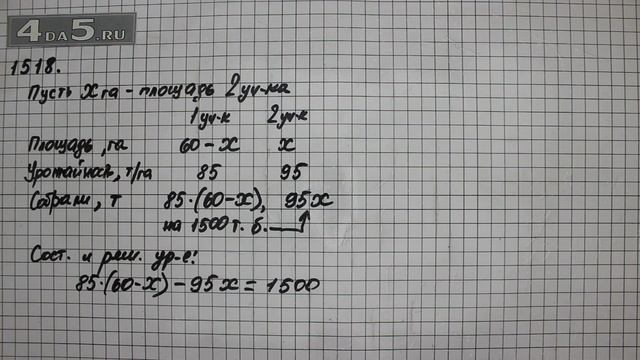 4DA5.RU
1518.
Пусть х га - площадь 2 уч-ка
1 уч-к 2 уч-к
Площадь, га 60 - х х
Урожайност, т/га 85 95
Собрали, т 85·(60-х), 95х
на 1500 т. б.
Сост. и реш. ур-е:
85·(60-х) - 95х = 1500